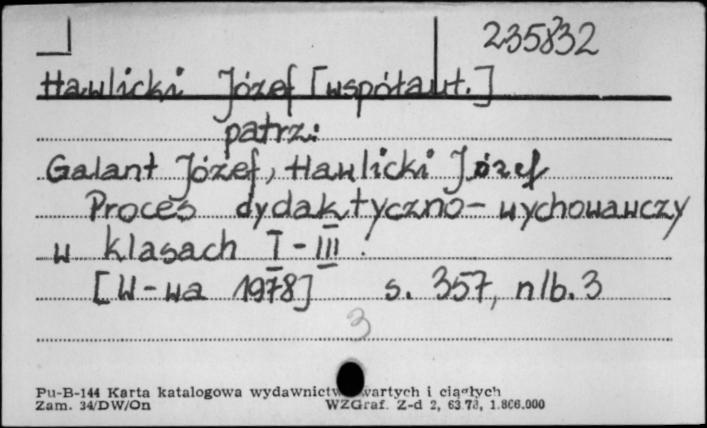 235832
Hawlicki Józef [współaut.]
patrz:
Galant Józef, Hawlicki Józef
Proces dydaktyczno-wychowawczy
w klasach I-III.
[W-wa 1978] s. 357, nlb. 3
3
Pu-B-144 Karta katalogowa wydawnictw zwartych i ciągłych
Zam. 34/DW/On WZGraf. Z-d 2, 63.73, 1.866.000